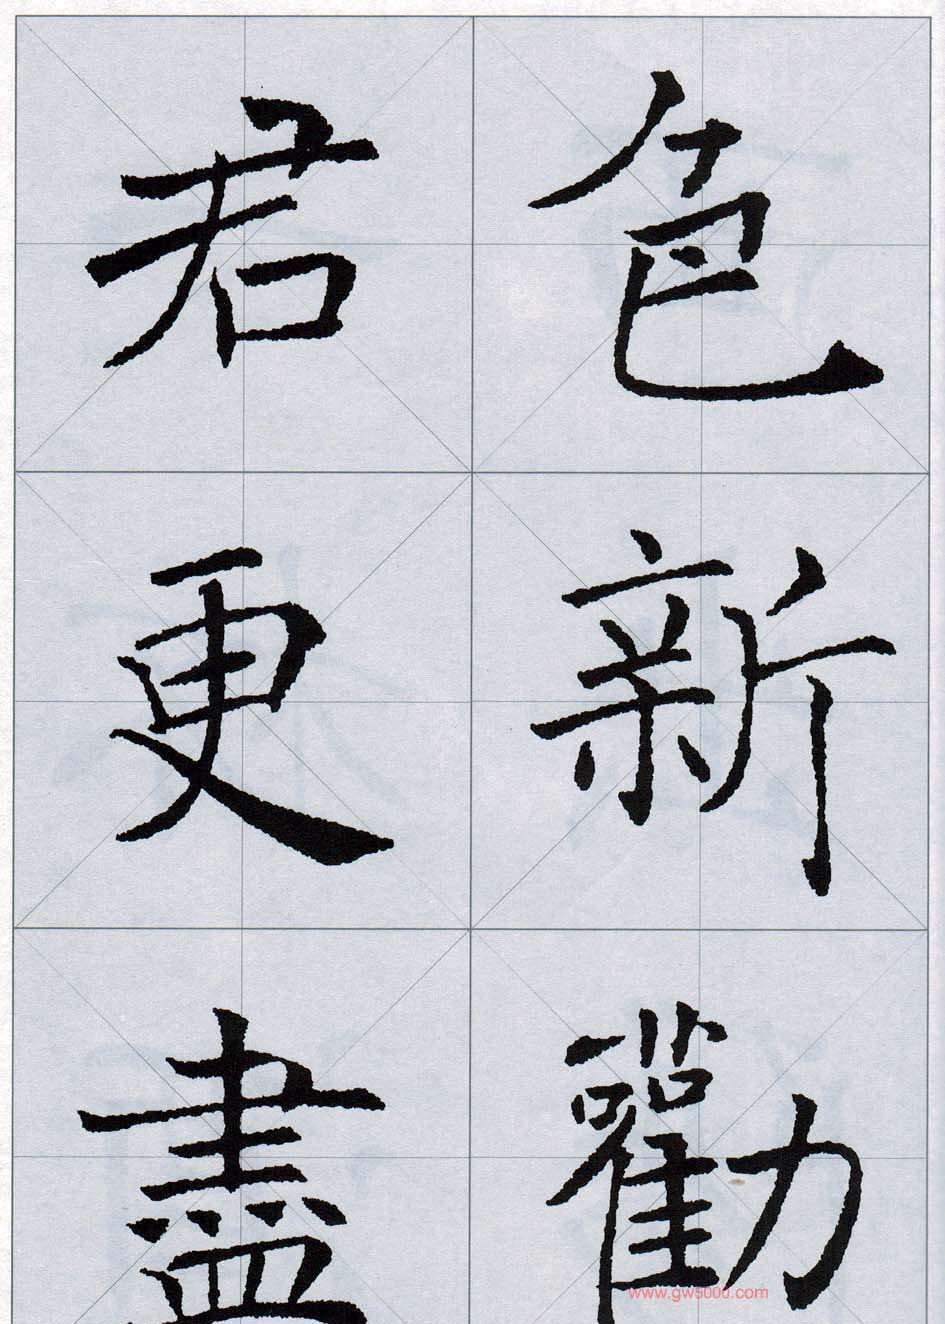 色新勸
君更盡
www.gw5000.com